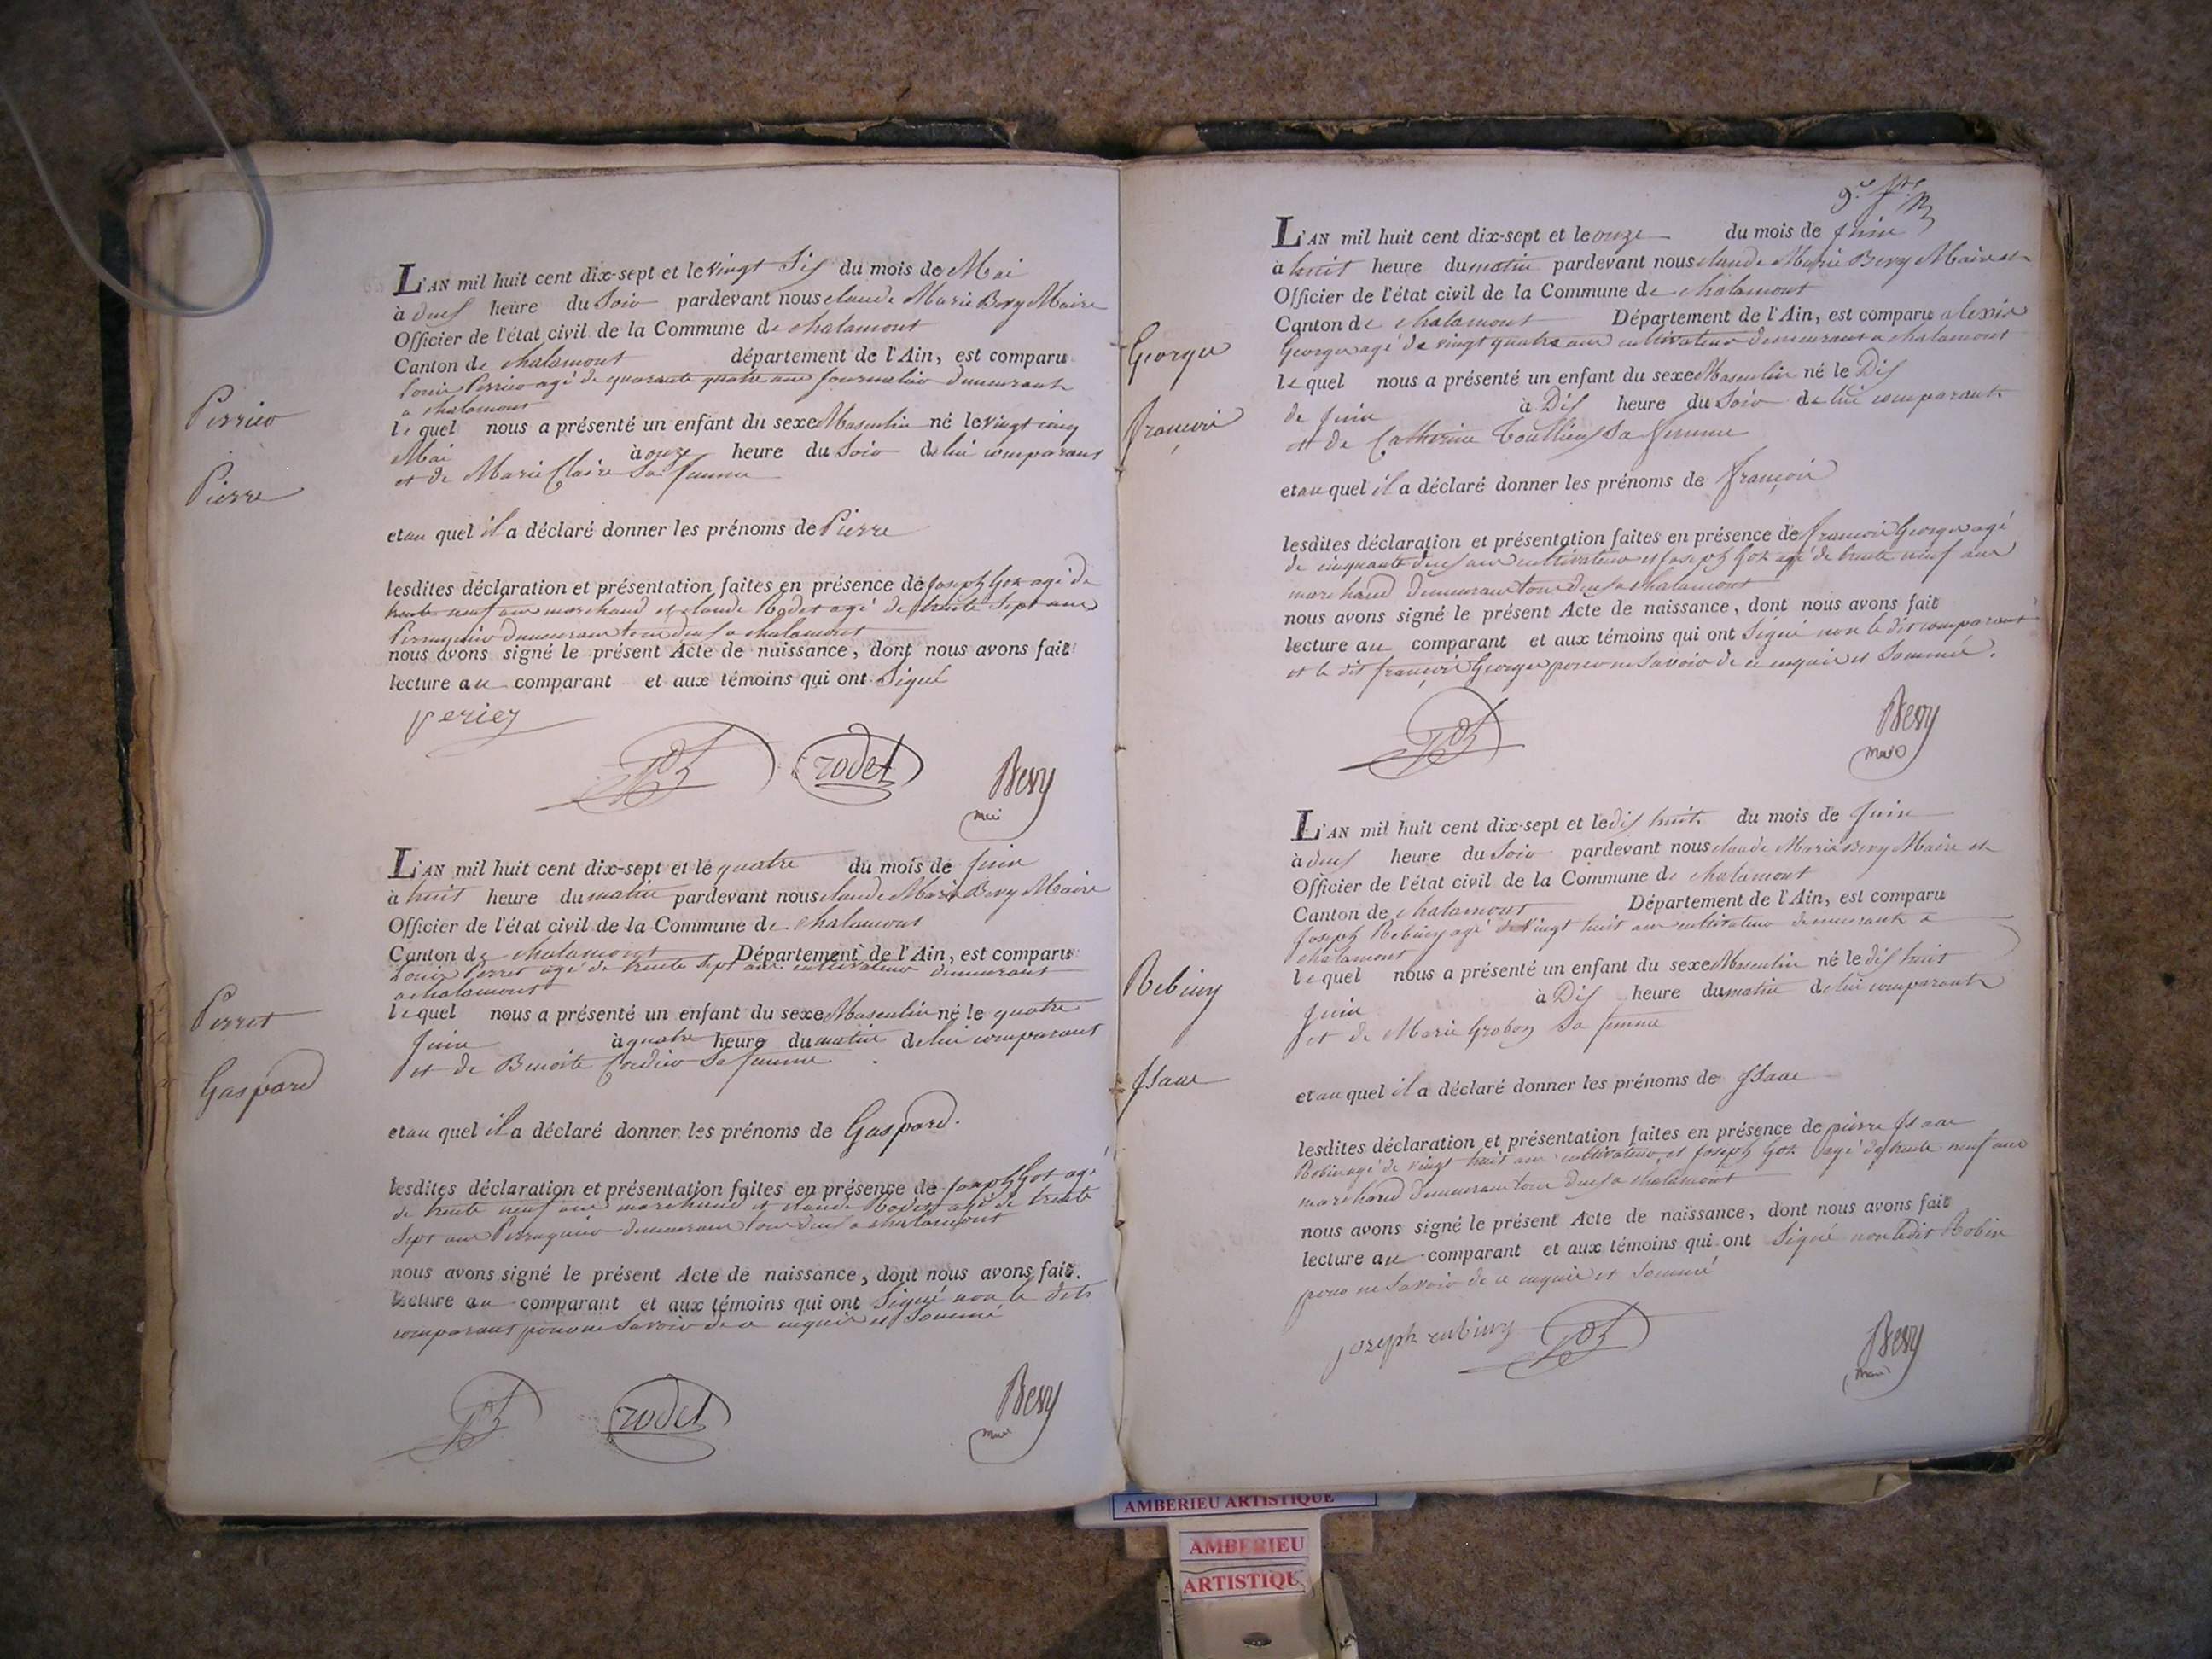 Perrier
Pierre
L'AN mil huit cent dix-sept et le vingt Six du mois de Mai
à deux heure du Soir pardevant nous claude Marie Bevy Maire
Officier de l'état civil de la Commune de chalamont
Canton de chalamont département de l'Ain, est comparu
Louis Perrier agé de quarante quatre ans fournelier demeurant
a chalamont
lequel nous a présenté un enfant du sexe Masculin né le vingt cinq
Mai à onze heure du Soir de lui comparant
et de Marie Claire Sa femme
et au quel il a déclaré donner les prénoms de Pierre
lesdites déclaration et présentation faites en présence de joseph Goz agé de
trente neuf ans marchand et claude Rodet agé de trente Sept ans
Perruquier demeurant tous deux a chalamont
nous avons signé le présent Acte de naissance, dont nous avons fait
lecture au comparant et aux témoins qui ont Signé
periez
rodet
Bevy
L'AN mil huit cent dix-sept et le quatre du mois de juin
à huit heure du matin pardevant nous claude Marie Bevy Maire
Officier de l'état civil de la Commune de chalamont
Canton de chalamont Département de l'Ain, est comparu
Louis Perret agé de trente Sept ans cultivateur demeurant
a chalamont
Perret
lequel nous a présenté un enfant du sexe Masculin né le quatre
juin à quatre heure du matin de lui comparant
et de Benoite Cordier Sa femme
Gaspard
et au quel il a déclaré donner les prénoms de Gaspard.
lesdites déclaration et présentation faites en présence de joseph Goz agé
de trente neuf ans marchand et claude Rodet agé de trente
Sept ans Perruquier demeurant tous deux a chalamont
nous avons signé le présent Acte de naissance, dont nous avons fait
lecture au comparant et aux témoins qui ont Signé non le dit
comparant pour ne Savoir de ce enquis et Sommé
rodet
Bevy
L'AN mil huit cent dix-sept et le onze du mois de juin
à huit heure du matin pardevant nous claude Marie Bevy Maire et
Officier de l'état civil de la Commune de chalamont
Canton de chalamont Département de l'Ain, est comparu alexis
Georges agé de vingt quatre ans cultivateur demeurant a chalamont
Georges
lequel nous a présenté un enfant du sexe Masculin né le Dix
de juin à Dix heure du Soir de lui comparant
et de Catherine Sa femme
françois
et au quel il a déclaré donner les prénoms de françois
lesdites déclaration et présentation faites en présence de françois Georges agé
de cinquante deux ans cultivateur et joseph Goz agé de trente neuf ans
marchand demeurant tous deux a chalamont
nous avons signé le présent Acte de naissance, dont nous avons fait
lecture au comparant et aux témoins qui ont Signé non le dit comparant
et le dit françois Georges pour ne Savoir de ce enquis et Sommé.
Bevy
L'AN mil huit cent dix-sept et le dix huit du mois de juin
à deux heure du Soir pardevant nous claude Marie Bevy Maire et
Officier de l'état civil de la Commune de chalamont
Canton de chalamont Département de l'Ain, est comparu
joseph Rebiuy agé de vingt huit ans cultivateur demeurant a
chalamont
Rebiuy
lequel nous a présenté un enfant du sexe Masculin né le dix huit
juin à Dix heure du matin de lui comparant
et de Marie Grobon Sa femme
Isaac
et au quel il a déclaré donner les prénoms de Isaac
lesdites déclaration et présentation faites en présence de pierre Isaac
Robin agé de vingt huit ans cultivateur, et joseph Goz agé de trente neuf ans
marchand demeurant tous deux a chalamont
nous avons signé le présent Acte de naissance, dont nous avons fait
lecture au comparant et aux témoins qui ont Signé non ledit Robin
pour ne Savoir de ce enquis et Sommé
joseph
Bevy
AMBERIEU ARTISTIQUE
AMBERIEU
ARTISTIQUE